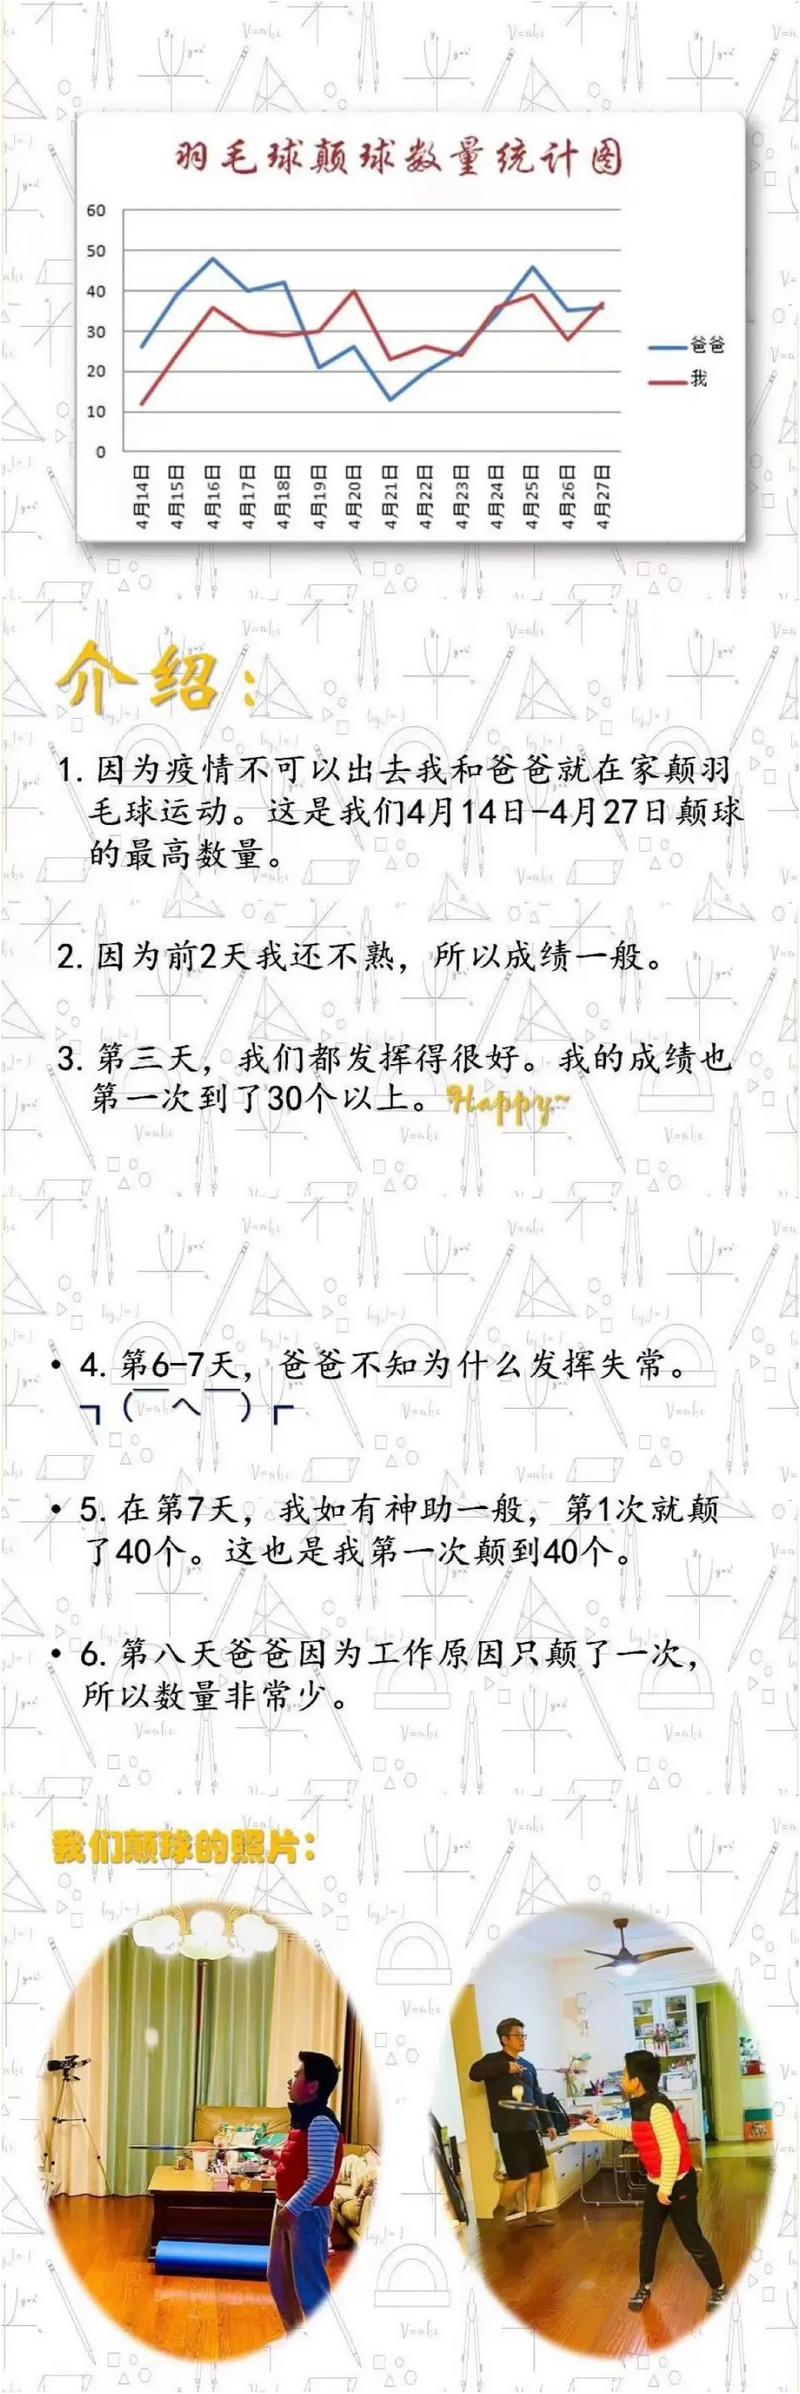 羽毛球颠球数量统计图
60
50
40
30
20
10
0
爸爸
我
4月14日
4月15日
4月16日
4月17日
4月18日
4月19日
4月20日
4月21日
4月22日
4月23日
4月24日
4月25日
4月26日
4月27日
介绍：
1. 因为疫情不可以出去我和爸爸就在家颠羽
毛球运动。这是我们4月14日-4月27日颠球
的最高数量。
2. 因为前2天我还不熟，所以成绩一般。
3. 第三天，我们都发挥得很好。我的成绩也
第一次到了30个以上。Happy~
• 4. 第6-7天，爸爸不知为什么发挥失常。
┓(￣へ￣)┏
• 5. 在第7天，我如有神助一般，第1次就颠
了40个。这也是我第一次颠到40个。
• 6. 第八天爸爸因为工作原因只颠了一次，
所以数量非常少。
我们颠球的照片：